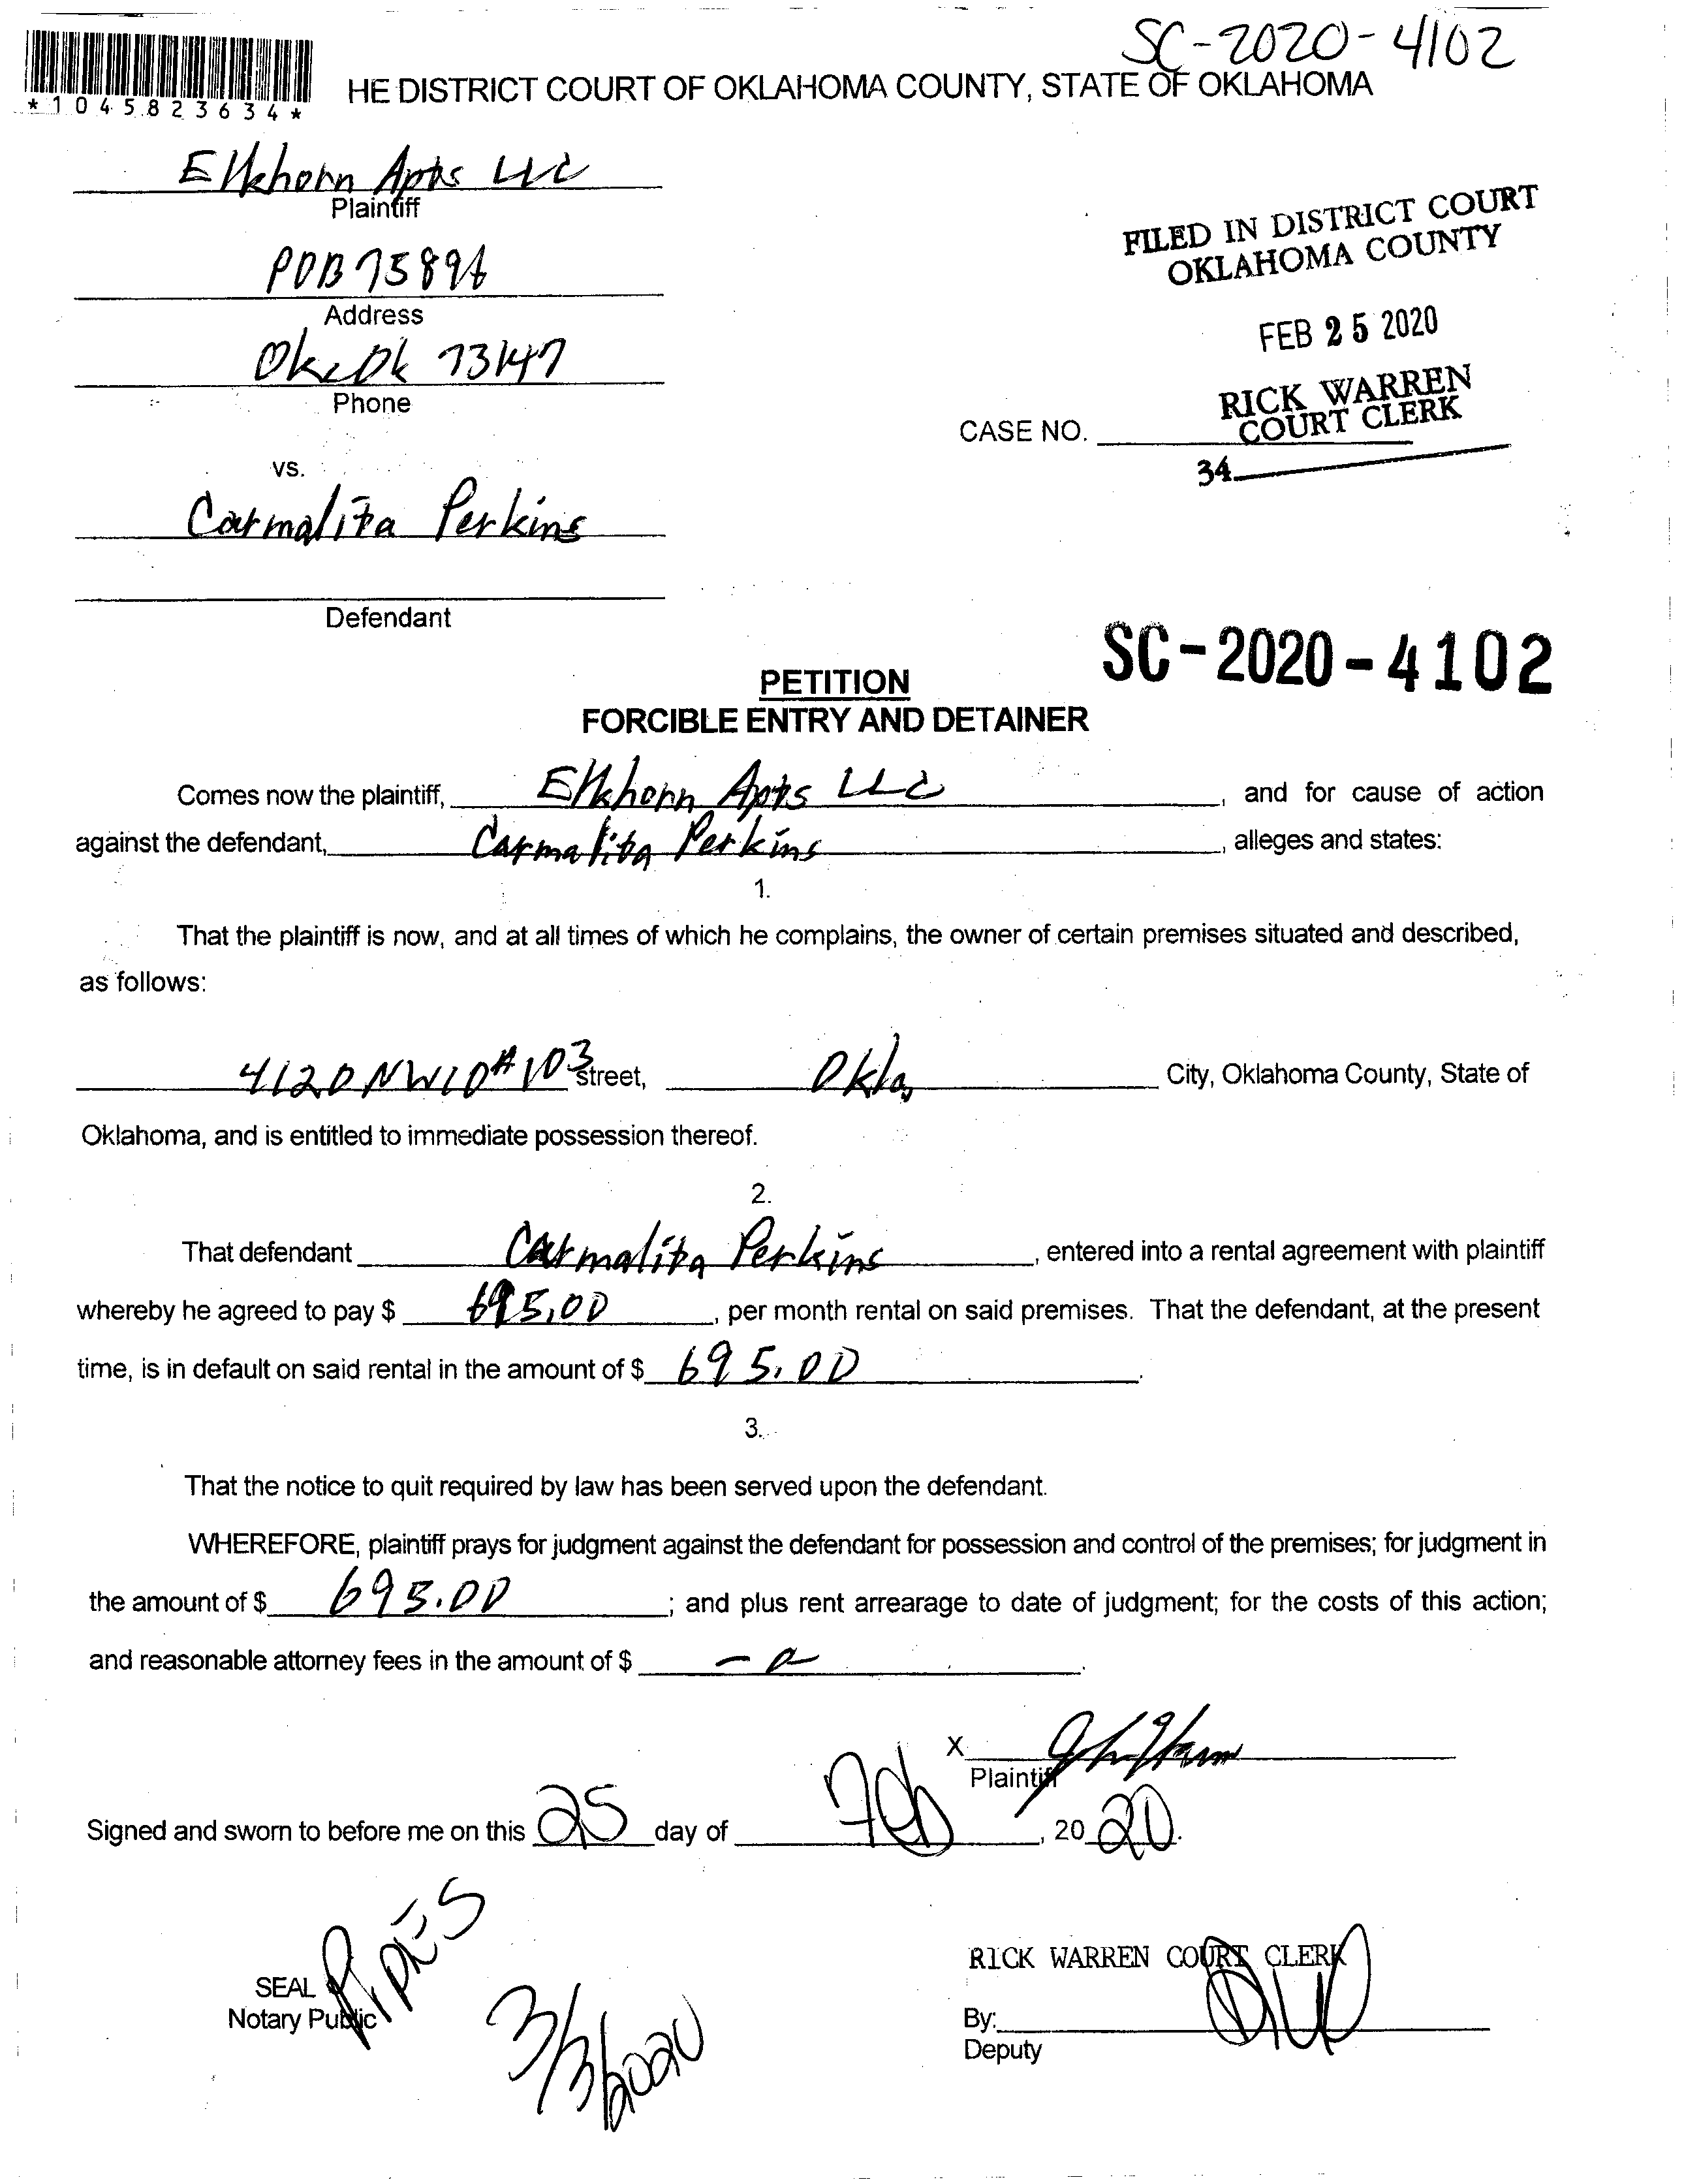 SC-2020-4102
*1045823634*
HE DISTRICT COURT OF OKLAHOMA COUNTY, STATE OF OKLAHOMA
Elkhorn Apts LLC
Plaintiff
POB 75896
Address
Okc Ok 73147
Phone
FILED IN DISTRICT COURT
OKLAHOMA COUNTY
FEB 25 2020
RICK WARREN
COURT CLERK
CASE NO.
34
vs.
Carmalita Perkins
Defendant
SC-2020-4102
PETITION
FORCIBLE ENTRY AND DETAINER
Comes now the plaintiff, Elkhorn Apts LLC, and for cause of action
against the defendant, Carmalita Perkins, alleges and states:
1.
That the plaintiff is now, and at all times of which he complains, the owner of certain premises situated and described,
as follows:
4120 NW 10 #103 Street, Okla, City, Oklahoma County, State of
Oklahoma, and is entitled to immediate possession thereof.
2.
That defendant Carmalita Perkins, entered into a rental agreement with plaintiff
whereby he agreed to pay $ 695.00, per month rental on said premises. That the defendant, at the present
time, is in default on said rental in the amount of $ 695.00.
3.
That the notice to quit required by law has been served upon the defendant.
WHEREFORE, plaintiff prays for judgment against the defendant for possession and control of the premises; for judgment in
the amount of $ 695.00; and plus rent arrearage to date of judgment; for the costs of this action;
and reasonable attorney fees in the amount of $ -0-.
X
Plaintiff
Signed and sworn to before me on this 25 day of Feb, 2020.
PIPES
3/3/2020
SEAL
Notary Public
RICK WARREN COURT CLERK
By:
Deputy